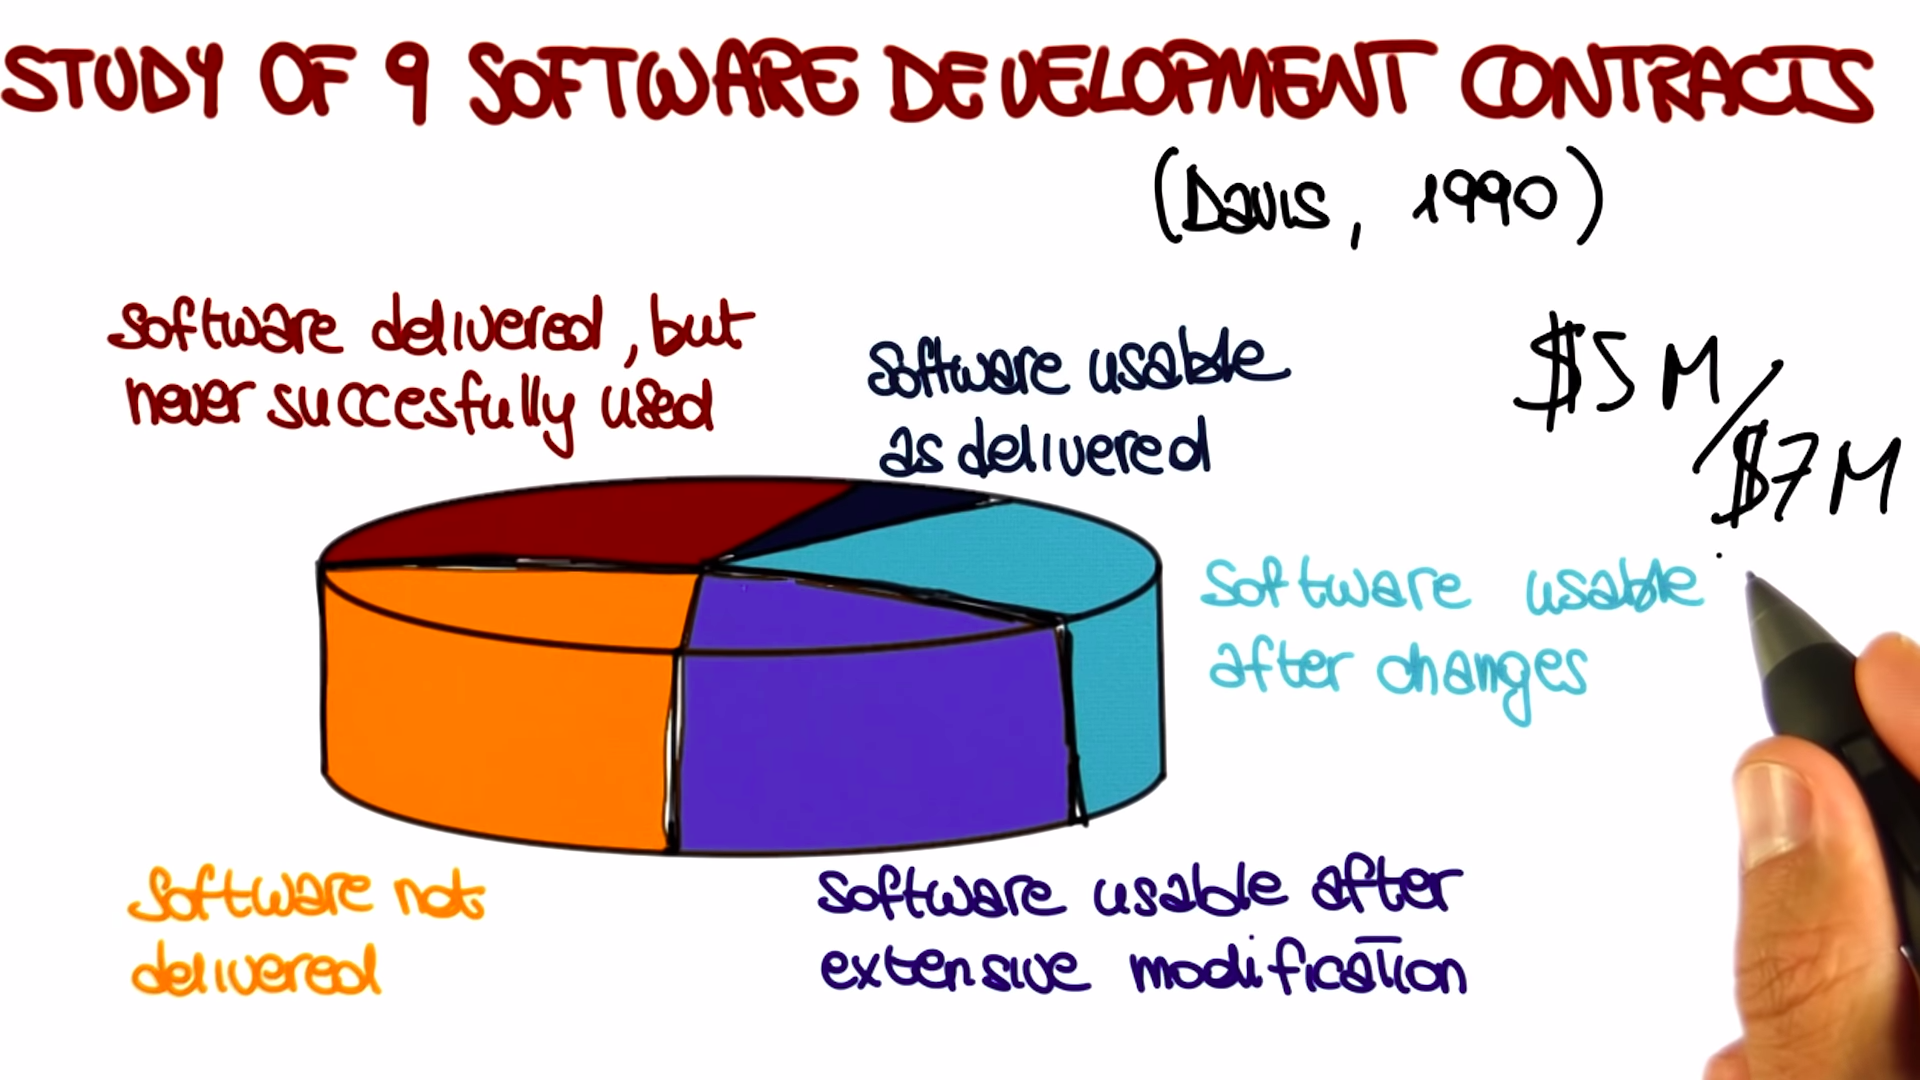 STUDY OF 9 SOFTWARE DEVELOPMENT CONTRACTS
(Davis, 1990)
software delivered, but
never succesfully used
software usable
as delivered
$5M/
$7M
software usable
after changes
software not
delivered
software usable after
extensive modification